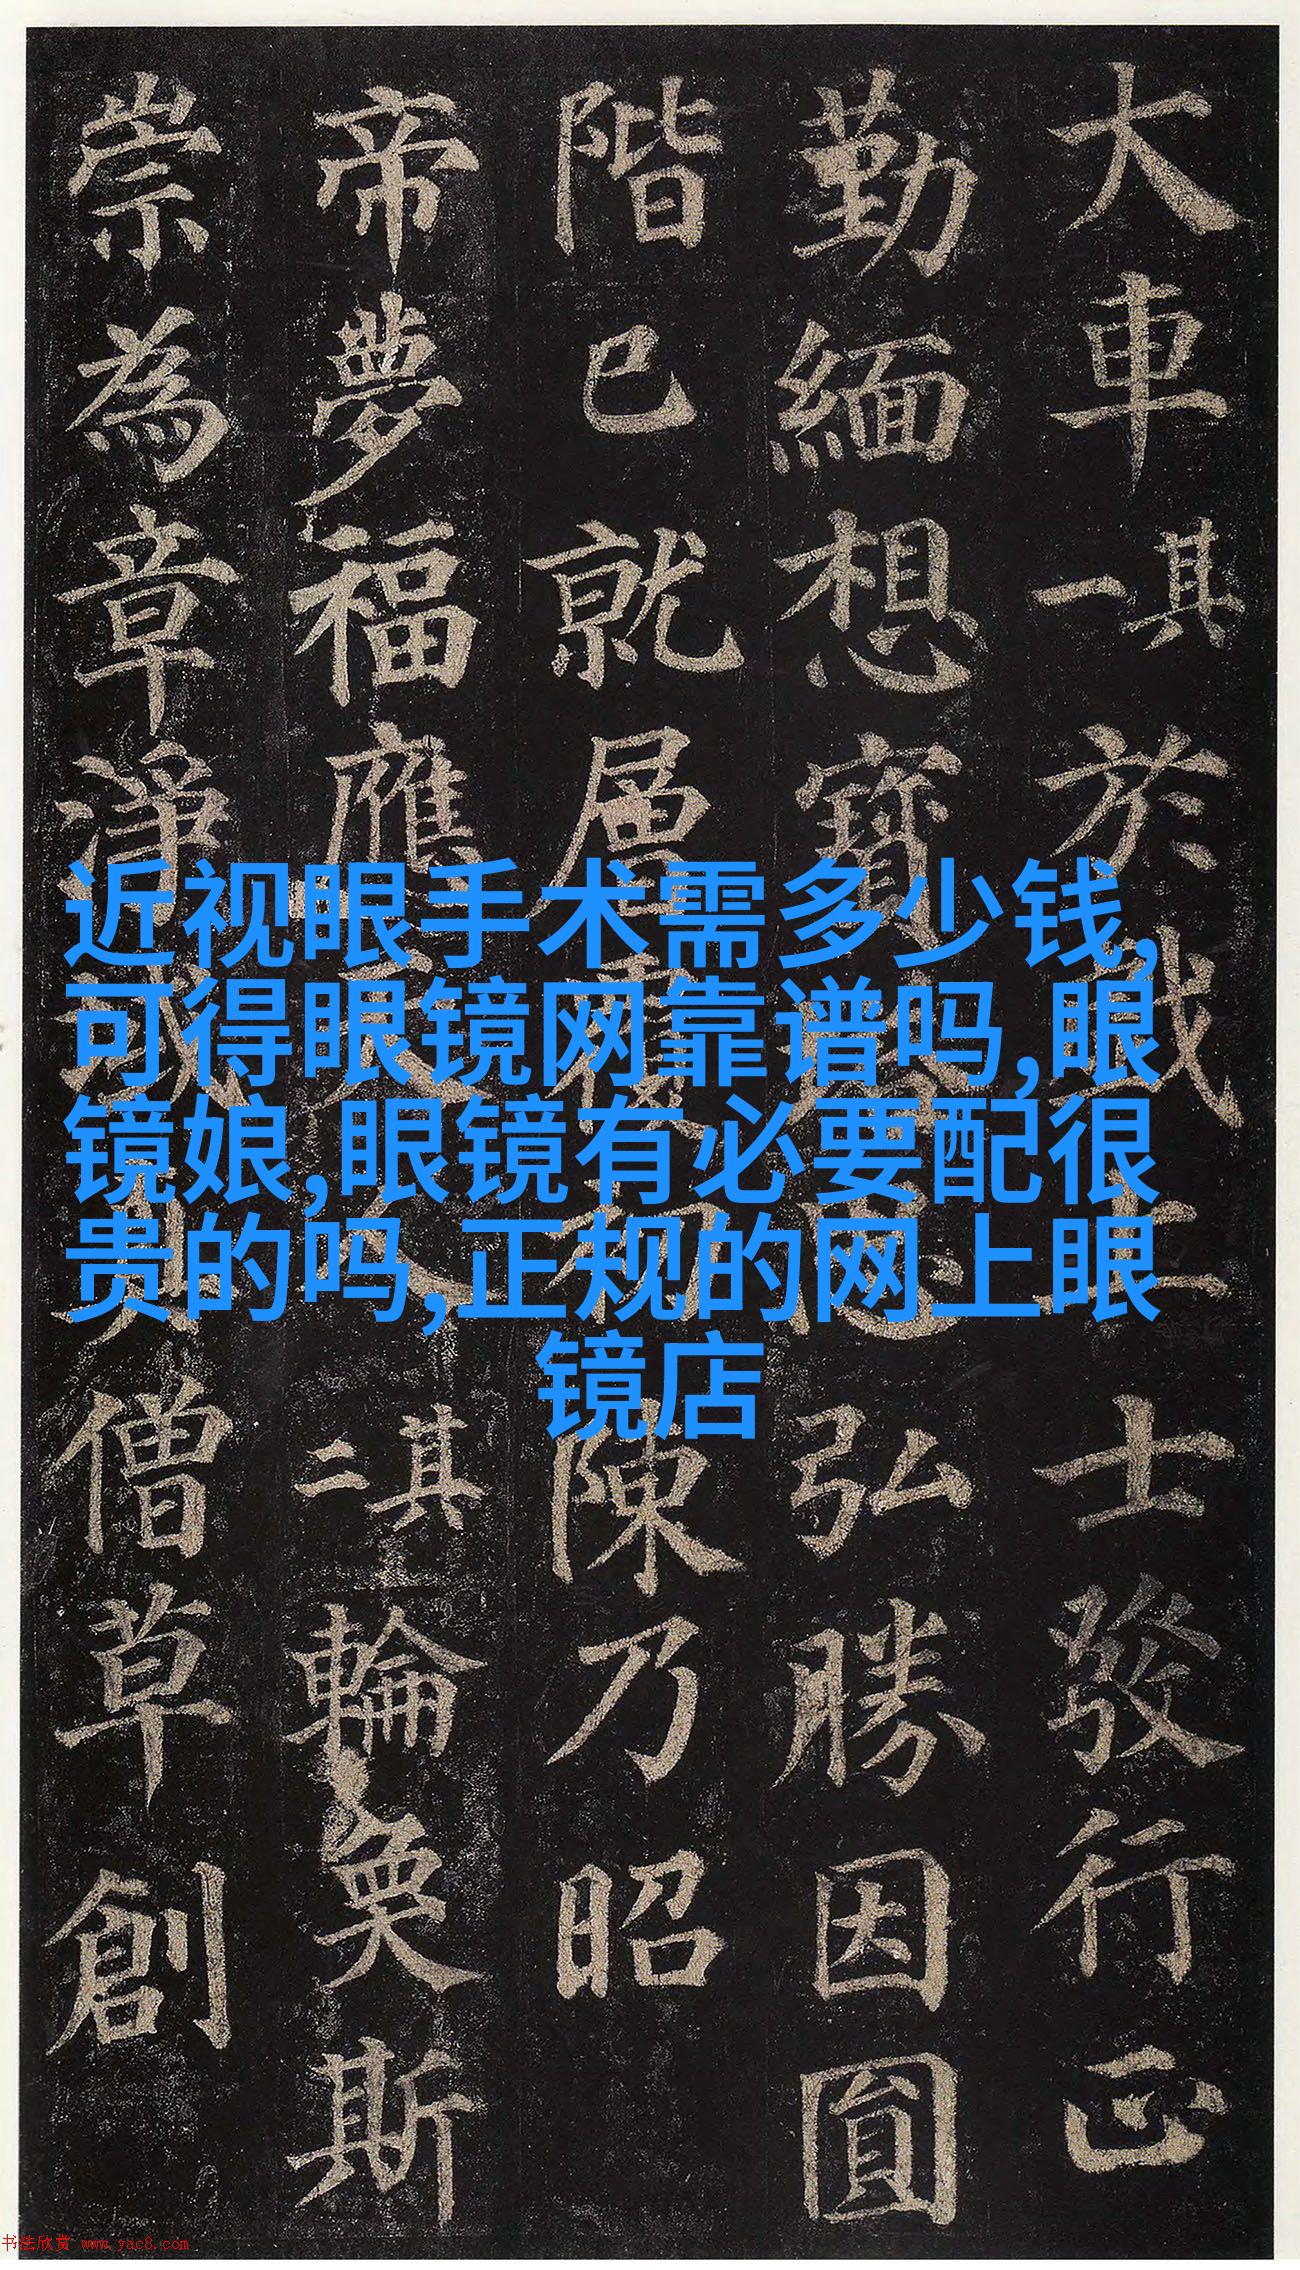 大車其一於戲上士發行正
勤緬想寶塔思弘勝因圓
階已就層覆初陳乃昭
帝夢福應天人其二輪奐斯
崇為章淨域真僧草創
近视眼手术需多少钱,
可得眼镜网靠谱吗,眼
镜娘,眼镜有必要配很
贵的吗,正规的网上眼
镜店
书法欣赏 www.yac8.com